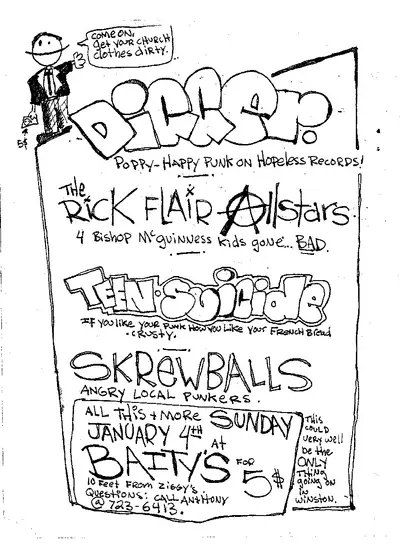 COME ON,
get YOUR CHURCH
clothes DIRTY.
5$
Digger.
POPPY-HAPPY PUNK ON HOPELESS RECORDS!
The
RICK FLAIR Allstars
4 BISHOP McGUINNESS KIDS GONE... BAD.
TEEN-SUICIDE
IF YOU LIKE YOUR PUNK HOW YOU LIKE YOUR FRENCH BREAD
-CRUSTY.
SKREWBALLS
ANGRY LOCAL PUNKERS.
ALL THIS + MORE SUNDAY
JANUARY 4TH AT
BAITY'S FOR 5$
10 FEET FROM ZIGGY'S
QUESTIONS: CALL ANTHONY
@ 723-6413.
THIS
COULD
VERY WELL
be the
ONLY
THING
going on
IN
WINSTON.